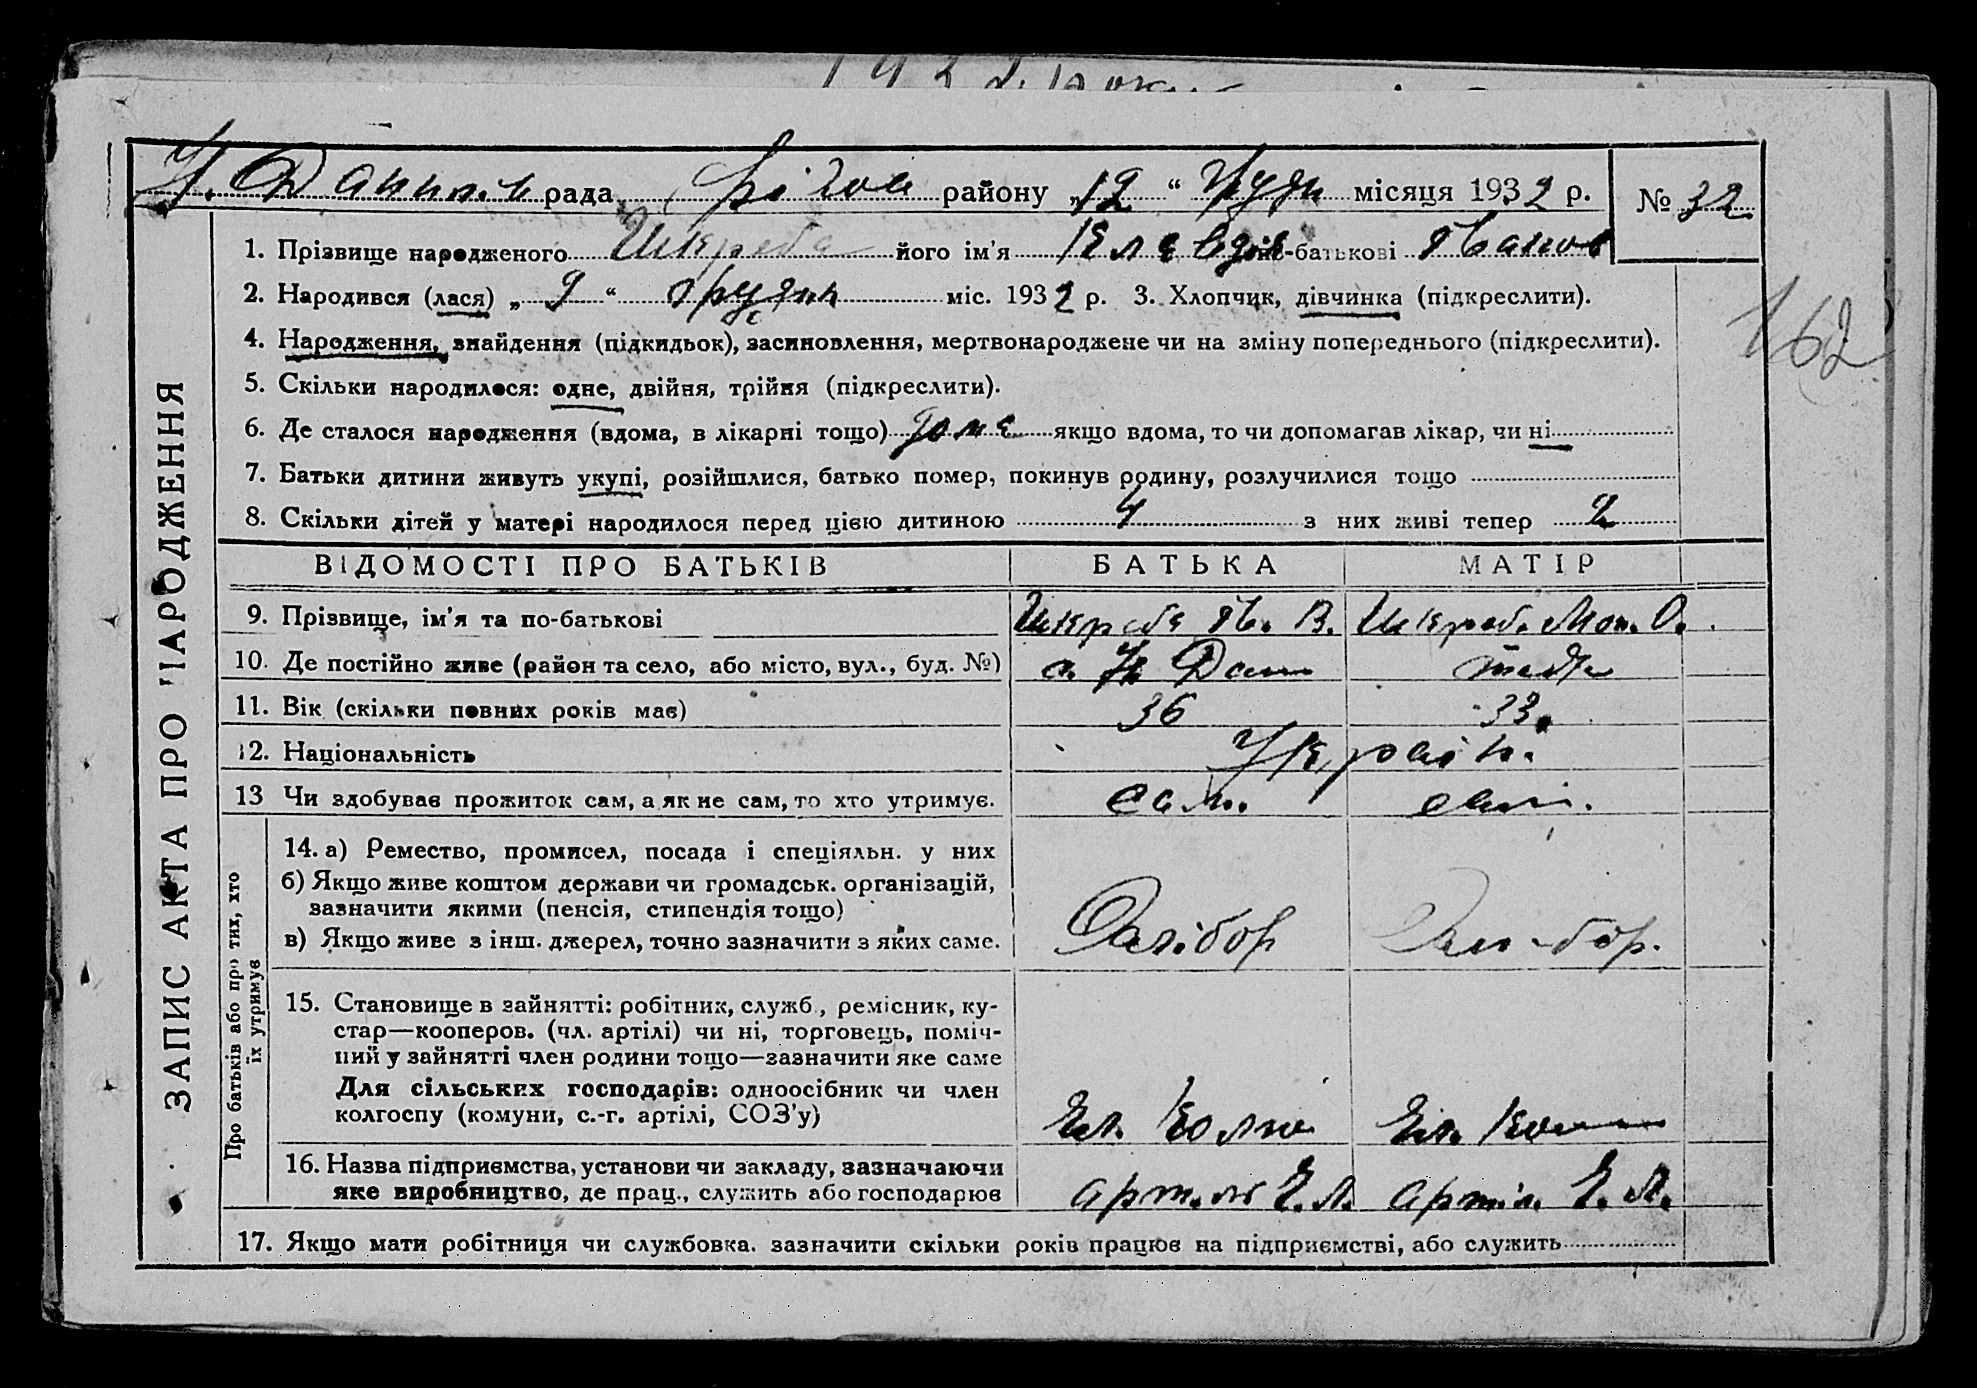 Н. Данилів рада район у „12“ Грудн місяця 1932 р. № 32
1. Прізвище народженого Шкреба його ім'я Клавдія по-батькові Іванов
2. Народився (лася) „9“ грудня міс. 1932 р. 3. Хлопчик, дівчинка (підкреслити).
162
4. Народження, знайдення (підкидьок), засиновлення, мертвонароджене чи на зміну попереднього (підкреслити).
5. Скільки народилося: одне, двійня, трійня (підкреслити).
6. Де сталося народження (вдома, в лікарні тощо) дома якщо вдома, то чи допомагав лікар, чи ні
7. Батьки дитини живуть укупі, розійшлися, батько помер, покинув родину, розлучилися тощо
8. Скільки дітей у матері народилося перед цією дитиною 4 з них живі тепер 2
ЗАПИС АКТА ПРО НАРОДЖЕННЯ
ВІДОМОСТІ ПРО БАТЬКІВ БАТЬКА МАТІР
9. Прізвище, ім'я та по-батькові Шкреба Ів. В. Шкреб. Мот. О.
10. Де постійно живе (район та село, або місто, вул., буд. №) с. Н Дани
11. Вік (скільки повних років має) 36 33
12. Національність Україн.
13 Чи здобуває прожиток сам, а як не сам, то хто утримує. сам. самі.
Про батьків або про тих, хто
їх утримує
14. а) Ремество, промисел, посада і спеціяльн. у них
б) Якщо живе коштом держави чи громадськ. організацій,
зазначити якими (пенсія, стипендія тощо)
в) Якщо живе з інш. джерел, точно зазначити з яких саме.
15. Становище в зайнятті: робітник, служб., ремісник, ку-
стар—кооперов. (чл. артілі) чи ні, торговець, поміч-
ний у зайнятті член родини тощо—зазначити яке саме
Для сільських господарів: одноосібник чи член
колгоспу (комуни, с.-г. артілі, СОЗ'у) Чл. Чл.
16. Назва підприємства, установи чи закладу, зазначаючи
яке виробництво, де прац., служить або господарює артіль артіл.
17. Якщо мати робітниця чи службовка, зазначити скільки років працює на підприємстві, або служить